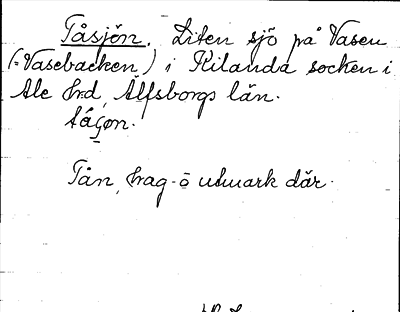 Tåsjön. Liten sjö på Vasen
(=Vasebacken) i Kilanda socken i
Ale hrd, Älfsborgs län.
tå̀çøn.
Tån, hag- o utmark där.